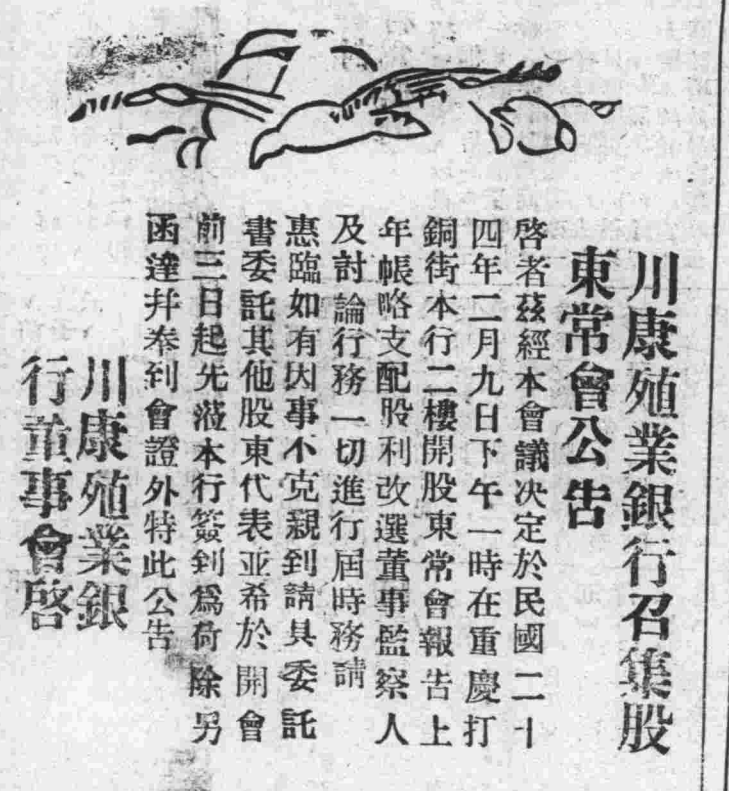 川康殖業銀行召集股
東常會公告
啓者茲經本會議決定於民國二十
四年二月九日下午一時在重慶打
銅街本行二樓開股東常會報告上
年帳略支配股利改選董事監察人
及討論行務一切進行屆時務請
惠臨如有因事不克親到請具委託
書委託其他股東代表並希於開會
前三日起先蒞本行簽到爲荷除另
函達并奉到會證外特此公告
川康殖業銀
行董事會啓